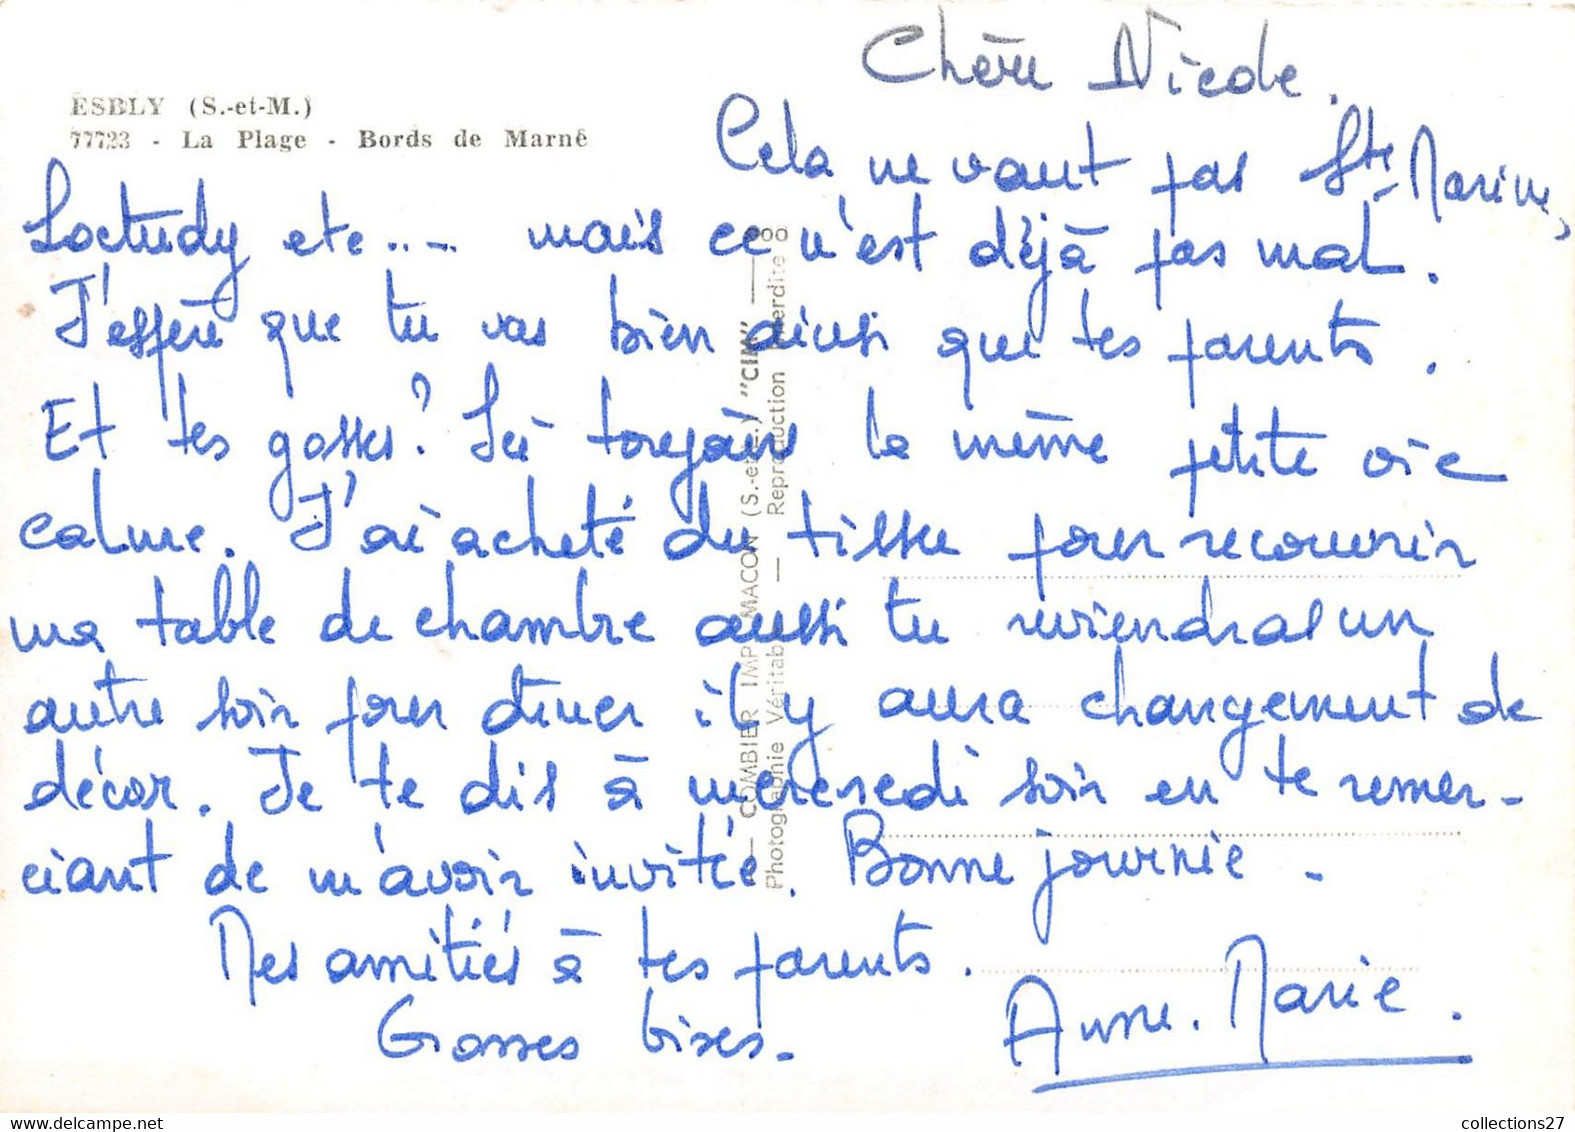 Chère Nicole.
ESBLY (S.-et-M.)
77723 - La Plage - Bords de Marne
Cela ne vaut pas Ste Marine,
Loctudy etc..-- mais ce n'est déjà pas mal.
J'espère que tu vas bien ainsi que tes parents.
Et tes gosses? Ici toujours la même petite vie
calme. J'ai acheté du tissu pour recouvrir
ma table de chambre aussi tu reviendras un
autre soir pour diner il y aura changement de
décor. Je te dis à mercredi soir en te remer-
ciant de m'avoir invitée. Bonne journée -
Mes amitiés à tes parents.
Grosses bises. Anne. Marie.
COMBIER IMP. MACON (S.-et-L.) "CIM"
Photographie Véritable — Reproduction interdite
collections27